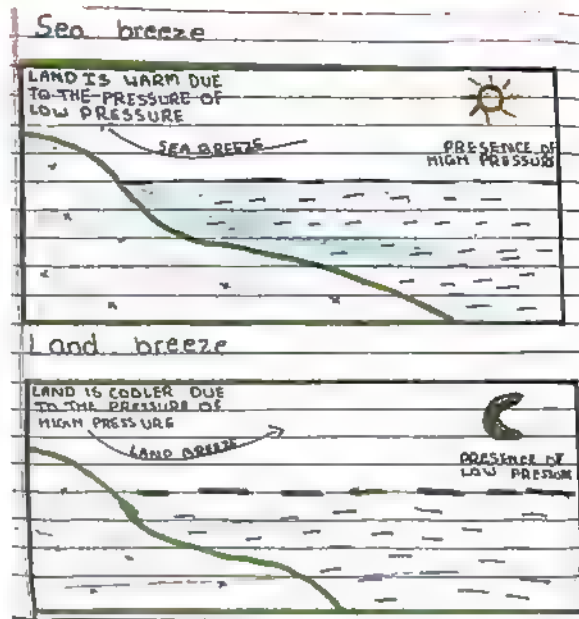 Sea breeze
LAND IS WARM DUE
TO THE PRESSURE OF
LOW PRESSURE
SEA BREEZE
PRESENCE OF
HIGH PRESSURE
Land breeze
LAND IS COOLER DUE
TO THE PRESSURE OF
HIGH PRESSURE
LAND BREEZE
PRESENCE OF
LOW PRESSURE